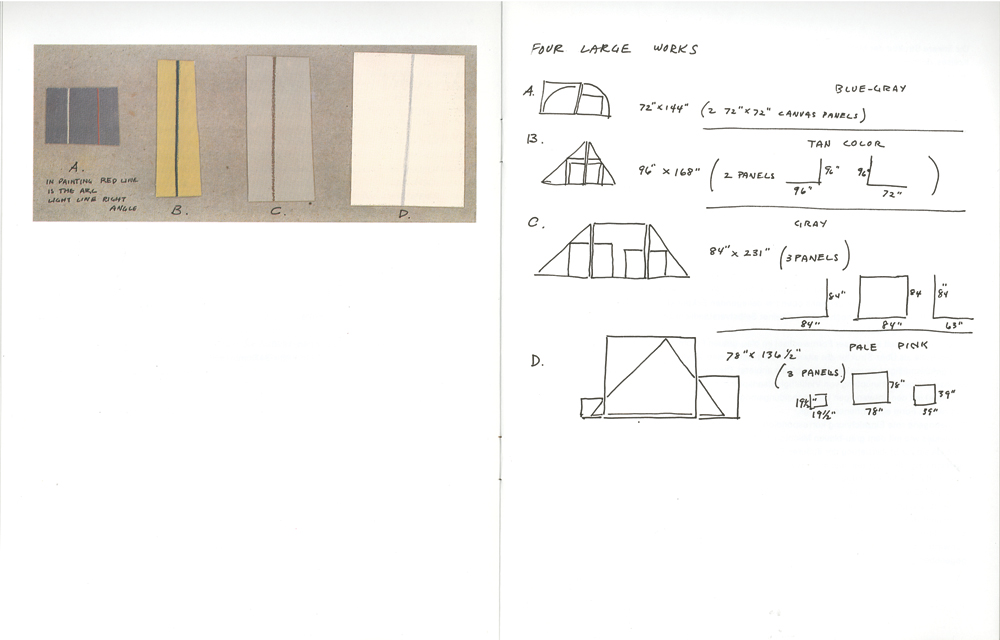 A.
IN PAINTING RED LINE
IS THE ARC
LIGHT LINE RIGHT
ANGLE
B.
C.
D.
FOUR LARGE WORKS
A.
BLUE-GRAY
72" x 144" (2 72" x 72" CANVAS PANELS)
B.
TAN COLOR
96" x 168" (2 PANELS 96" 96" 96" 72")
C.
GRAY
84" x 231" (3 PANELS)
84" 84 84"
84" 84" 63"
D.
PALE PINK
78" x 136 1/2"
(3 PANELS)
19 1/2" 78" 39"
19 1/2" 78" 39"